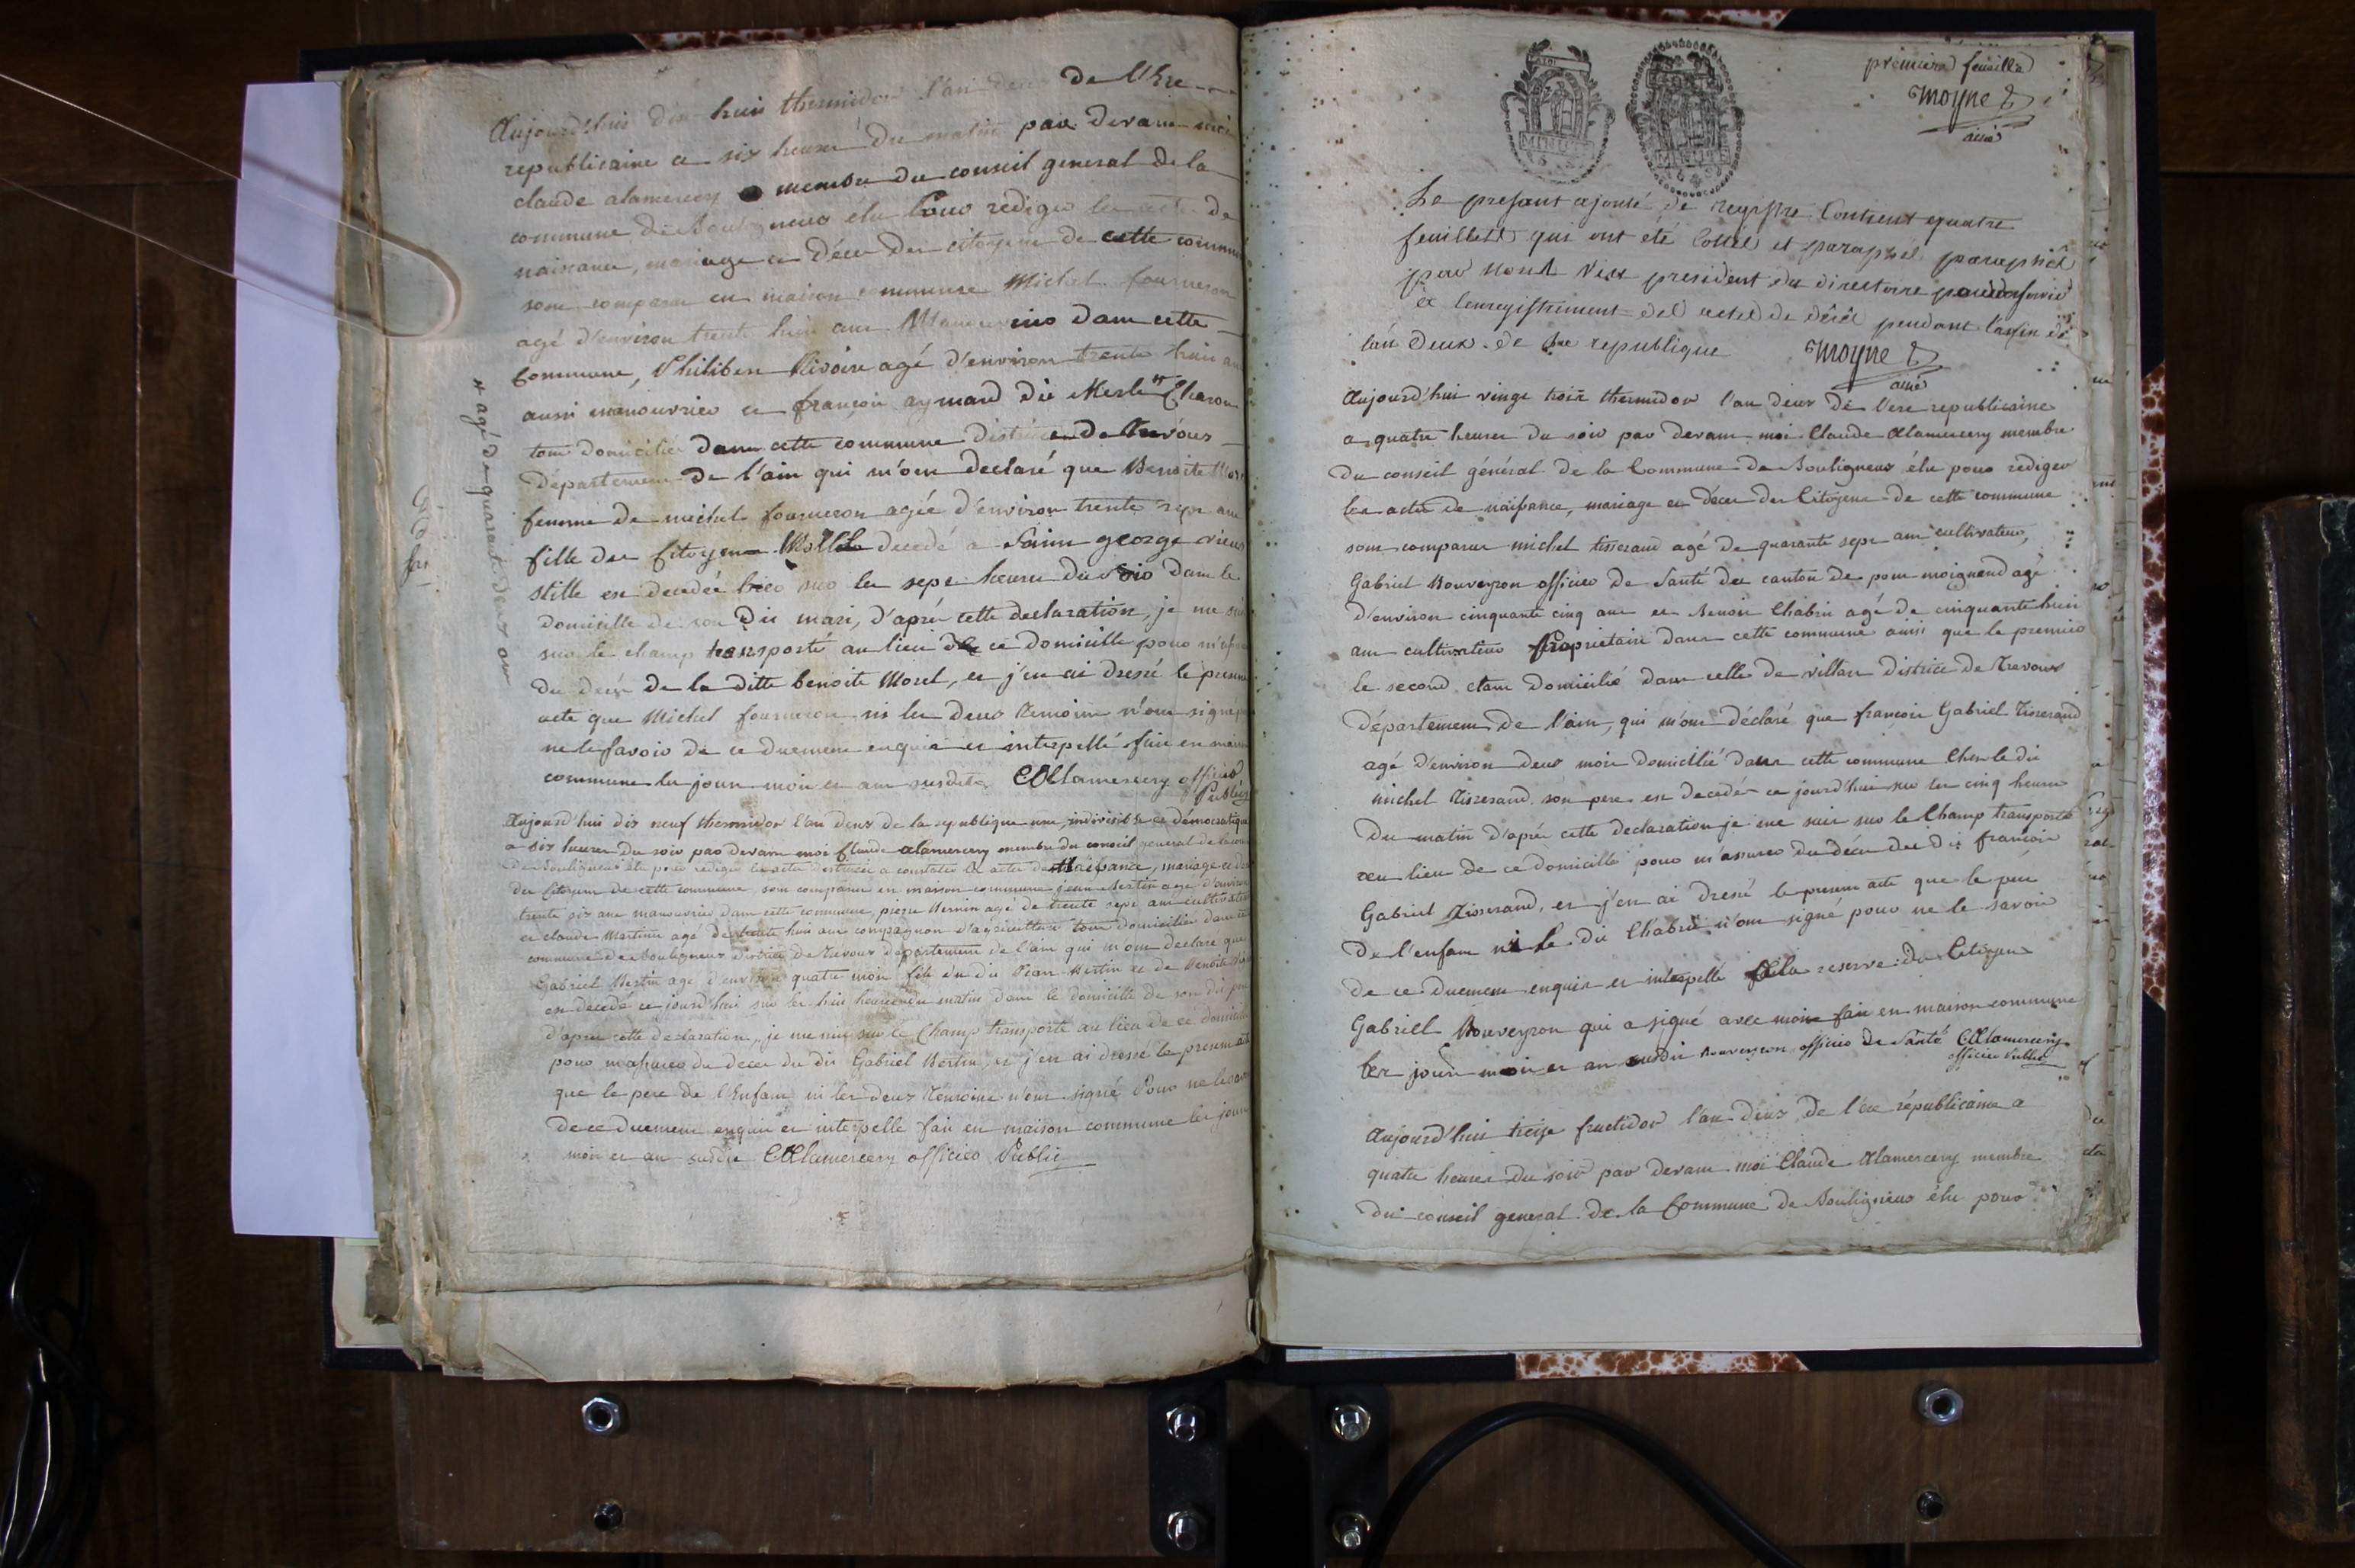 Aujourd'hui dix huit thermidor l'an deux de l'Ere
republicaine a six heures du matin par devant moi
claude alamercery membre du conseil general de la
commune de Bouligneux élu pour rediger les actes de
naissance, mariage et décès des citoyens de cette commune
sont comparu en maison commune Michel fourneron
agé d'environ trente huit ans Manouvrier dans cette
Commune, Philibert Rivoire agé d'environ trente huit ans
aussi manouvrier et françois aymard dit Merle # Charon
tous domicilié dans cette commune district de Trevoux
département de l'ain qui m'ont declaré que Benoite Morel
femme de michel fourneron agée d'environ trente sept ans
fille des Citoyens decedé a Saint george
est decedée hier sur les sept heures du soir dans le
domicille de son dit mari, d'aprés cette declaration, je me suis
sur le champ transporté au lieu de ce domicille pour m'assurer
du decés de la ditte benoite Morel, et j'en ai dressé le present
acte que Michel fourneron ni les deux temoins n'ont signé pour
ne le savoir de ce duement enquis et interpellé fait en maison
commune les jours mois et ans susdits CAlamercery officier
Public
# agé de quarante deux ans
Aujourd'hui dix neuf thermidor l'an deux de la republique une, indivisible et démocratique
a six heures du soir par devant moi Claude alamercery membre du conseil general de la commune
de Bouligneux élu pour rediger les actes destinés a constater les actes de Naissance, mariage et décès
des Citoyens de cette commune, sont comparu en maison commune jean Bertin agé d'environ
trente six ans manouvrier dans cette commune, pierre Bernin agé de trente sept ans cultivateur
et claude Martinet agé de trente huit ans compagnon d'agriculture tous domiciliés dans cette
commune de Bouligneux District de Trevoux departement de l'ain qui m'ont declaré que
Gabriel Bertin agé d'environ quatre mois fils du dit Jean Bertin et de Benoite
est decedé ce jourd'hui sur les huit heures du matin dans le domicille de son dit pere
d'aprés cette declaration, je me suis sur le Champ transporté au lieu de ce domicille
pour m'assurer du deces du dit Gabriel Bertin, et j'en ai dressé le present acte
que le pere de l'Enfant ni les deux Temoins n'ont signé Pour ne le savoir
de ce duement enquis et interpellé fait en maison commune les jours
mois et an susdit CAlamercery officier Public
premiere feuille
Moyne
ainé
MINUTE
MINUTE
Le presant ajouté de registre Contient quatre
feuillets qui ont été Cottés et paraphés paraphés
par nous vice president du directoire pour servir
a l'enregistrement des actes de décès pendant
l'an deux de la republique Moyne
ainé
Aujourd'hui vingt trois thermidor l'an deux de l'ere republicaine
a quatre heures du soir par devant moi Claude Alamercery membre
du conseil général de la Commune de Bouligneux élu pour rediger
les actes de naissance, mariage et décès des Citoyens de cette commune
sont comparus michel tisserand agé de quarante sept ans cultivateur,
Gabriel Bouveyron officier de Santé du canton de agé
d'environ cinquante cinq ans et Benoit Chabri agé de cinquante huit
ans cultivateur Propriétaire dans cette commune ainsi que le premier
le second étant domicilié dans celle de villars district de Trevoux
département de l'ain, qui m'ont déclaré que françois Gabriel Tisserand
agé d'environ deux mois domicilié dans cette commune Chez le dit
michel Tisserand son pere est decedé ce jourd'hui sur les cinq heures
du matin d'aprés cette declaration je me suis sur le Champ transporté
au lieu de ce domicille pour m'assurer du décès du dit françois
Gabriel Tisserand, et j'en ai dressé le present acte que le pere
de l'enfant ni le dit Chabri n'ont signé pour ne le savoir
de ce duement enquis et interpellé a la reserve du Citoyen
Gabriel Bouveyron qui a signé avec moi fait en maison commune
les jours mois et an susdit Bouveyron officier de Santé CAlamercery
officier Public
Aujourd'hui treize fructidor l'an deux de l'ere républicaine a
quatre heures du soir par devant moi Claude Alamercery membre
du conseil general de la Commune de Bouligneux élu pour